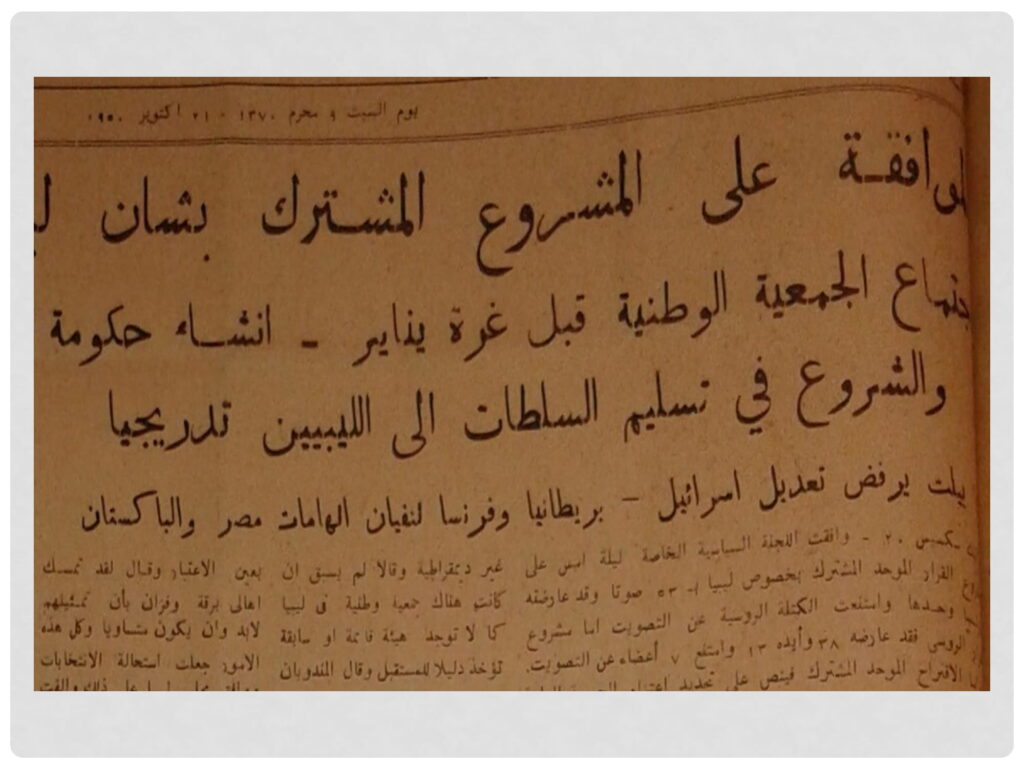 يوم السبت ٩ محرم ١٣٧٠ - ٢١ اكتوبر ٩٥٠
لموافقة على المشروع المشترك بشان لي
جتماع الجمعية الوطنية قبل غرة يناير - انشاء حكومة
والشروع في تسليم السلطات الى الليبيين تدريجيا
بيلت يرفض تعديل اسرائيل - بريطانيا وفرنسا تنفيان اتهامات مصر والباكستان
كسس ٢٠ - وافقت اللجنة السياسية الخاصة ليلة امس على
القرار الموحد المشترك بخصوص ليبيا بـ ٥٣ صوتا وقد عارضته
وحدها وامتنعت الكتلة الروسية عن التصويت اما مشروع
الروسى فقد عارضه ٣٨ وأيده ١٣ وامتنع ٧ أعضاء عن التصويت.
الاقتراح الموحد المشترك فينص على تحديد
غير ديمقراطية وقالا لم يسبق ان
كانت هناك جمعية وطنية فى ليبيا
كما لا توجد هيئة قائمة او سابقة
تؤخذ دليلا للمستقبل وقال المندوبان
بعين الاعتبار وقال لقد تمسك
اهالى برقة وفزان بأن تمثيلهم
لابد وان يكون متساويا وكل هذه
الامور جعلت استحالة الانتخابات